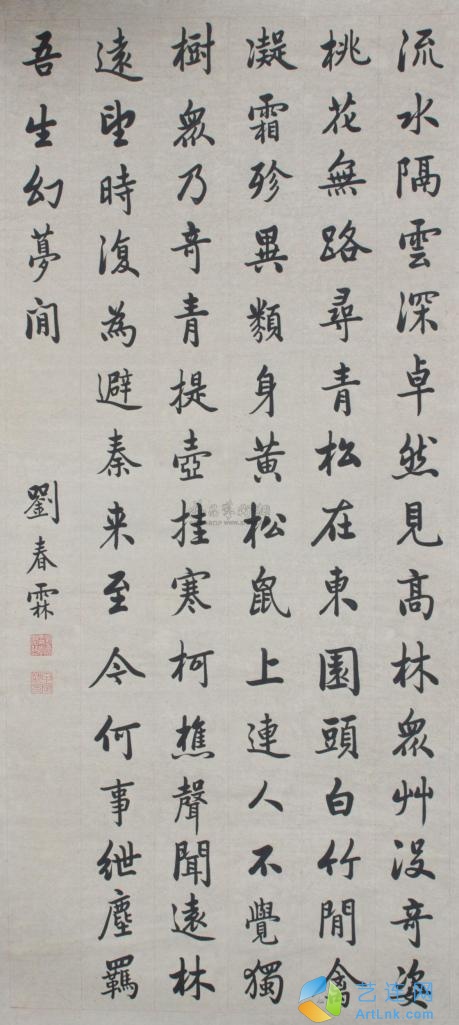 流水隔雲深卓然見高林眾艸没奇姿
桃花無路尋青松在東園頭白竹間禽
凝霜殄異類身黃松鼠上連人不覺獨
樹眾乃奇青提壺挂寒柯樵聲聞遠林
遠望時復為避秦来至今何事紲塵羈
吾生幻夢間
劉春霖
艺连网
ArtLnk.com